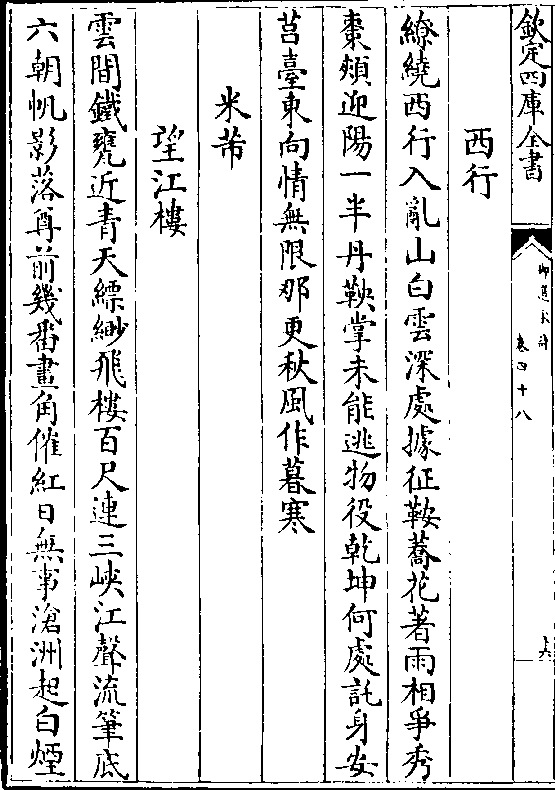 欽定四庫全書
御選宋詩
卷四十八
西行
繚繞西行入亂山白雲深處據征鞍蕎花著雨相爭秀
棗頰迎陽一半丹鞅掌未能逃物役乾坤何處託身安
莒臺東向情無限那更秋風作暮寒
米芾
望江樓
雲間鐵甕近青天縹緲飛樓百尺連三峽江聲流筆底
六朝帆影落尊前幾番畫角催紅日無事滄洲起白煙